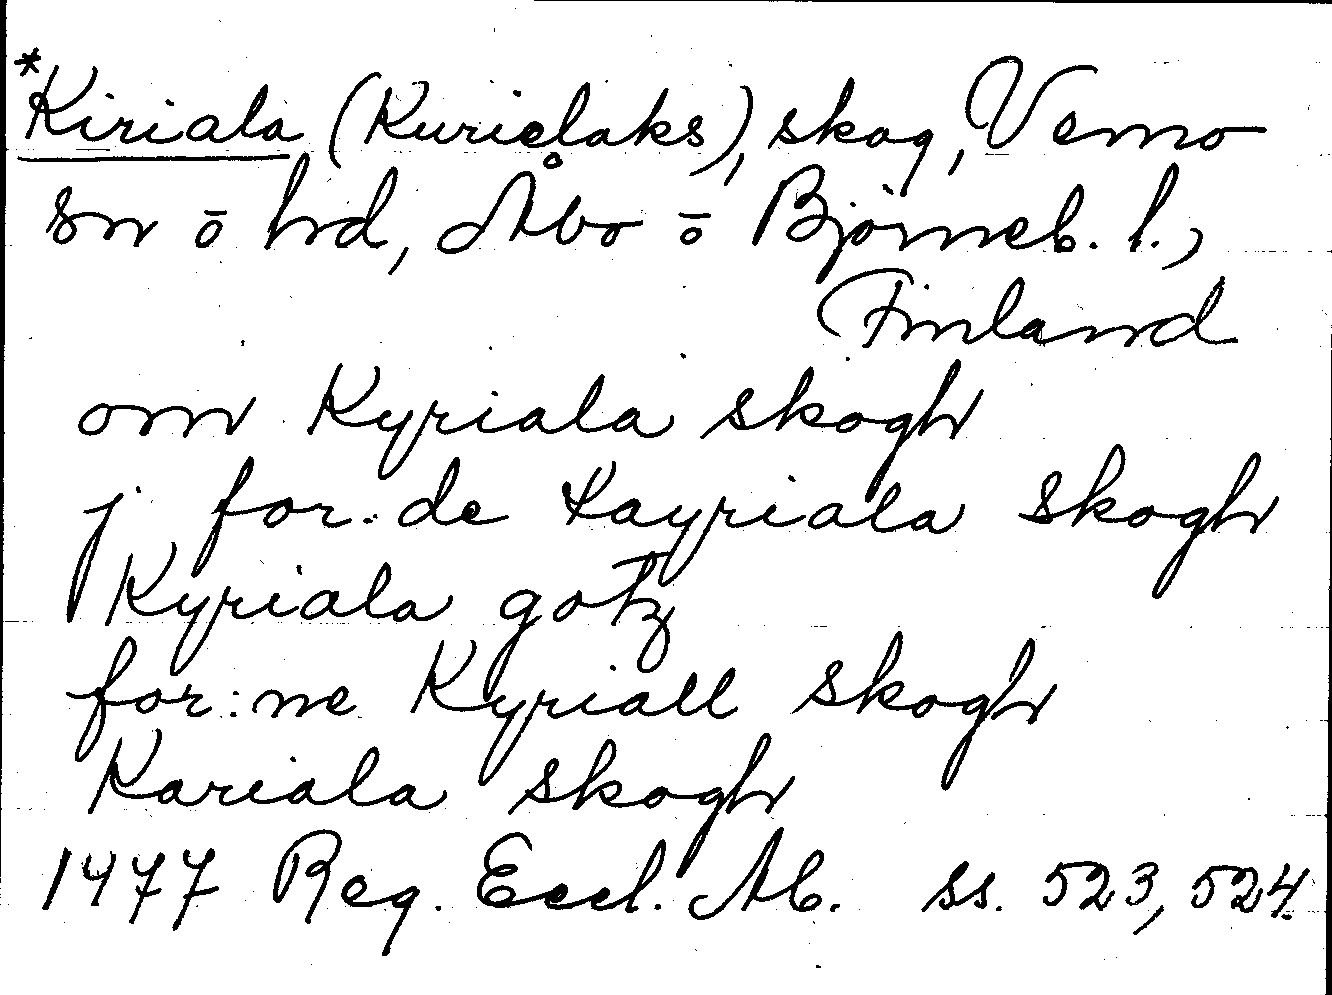 *Kiriala (Kurielaks), skog, Vemo
sn ō hd, Åbo ō Björneb. l.,
Finland
om Kyriala skogh
j for:de Kayriala skogh
Kyriala gotz
for:ne Kyriall skogh
Kariala skogh
1477 Reg. Eccl. Ab. ss. 523, 524.